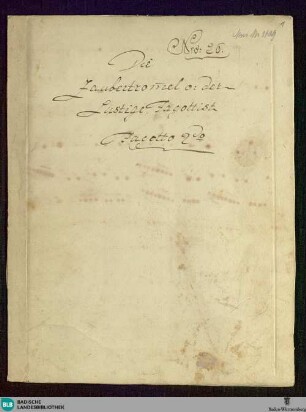 Nro: 26.
Die
Zaubertromel oder
Lustige Fagottist
Fagotto 2do
BLB
BADISCHE
LANDESBIBLIOTHEK
Baden-Württemberg